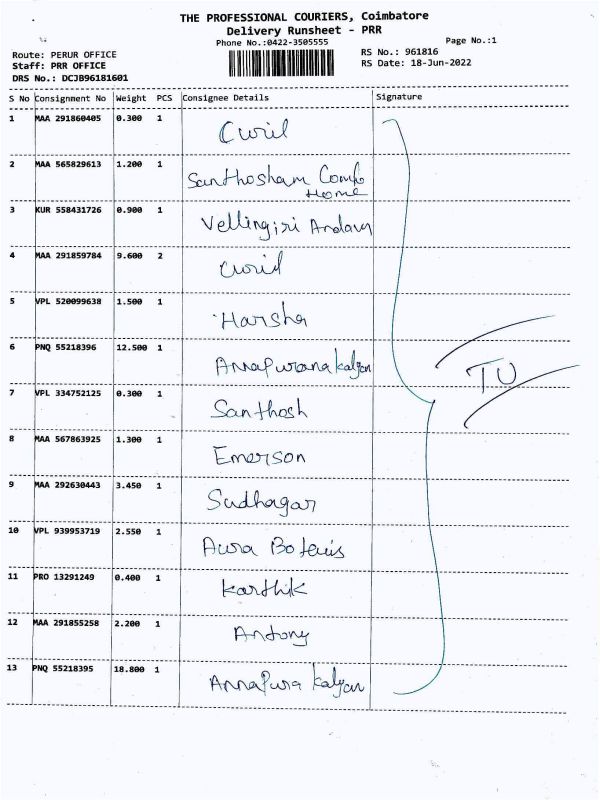 THE PROFESSIONAL COURIERS, Coimbatore
Delivery Runsheet - PRR
Phone No.:0422-3505555
Page No.:1
Route: PERUR OFFICE
RS No.: 961816
Staff: PRR OFFICE
RS Date: 18-Jun-2022
DRS No.: DCJB96181601
S No Consignment No Weight PCS Consignee Details Signature
1 MAA 291860405 0.300 1
2 MAA 565829613 1.200 1 Santhosham Home
3 KUR 558431726 0.900 1 Vellingiri Andavar
4 MAA 291859784 9.600 2
5 VPL 520099638 1.500 1 Harsha
6 PNQ 55218396 12.500 1 Annapurana kalyan
7 VPL 334752125 0.300 1 Santhosh
8 MAA 567863925 1.300 1 Emerson
9 MAA 292630443 3.450 1 Sudhagar
10 VPL 939953719 2.550 1 Aura
11 PRO 13291249 0.400 1 Karthik
12 MAA 291855258 2.200 1 Antony
13 PNQ 55218395 18.800 1 Annapura kalyan